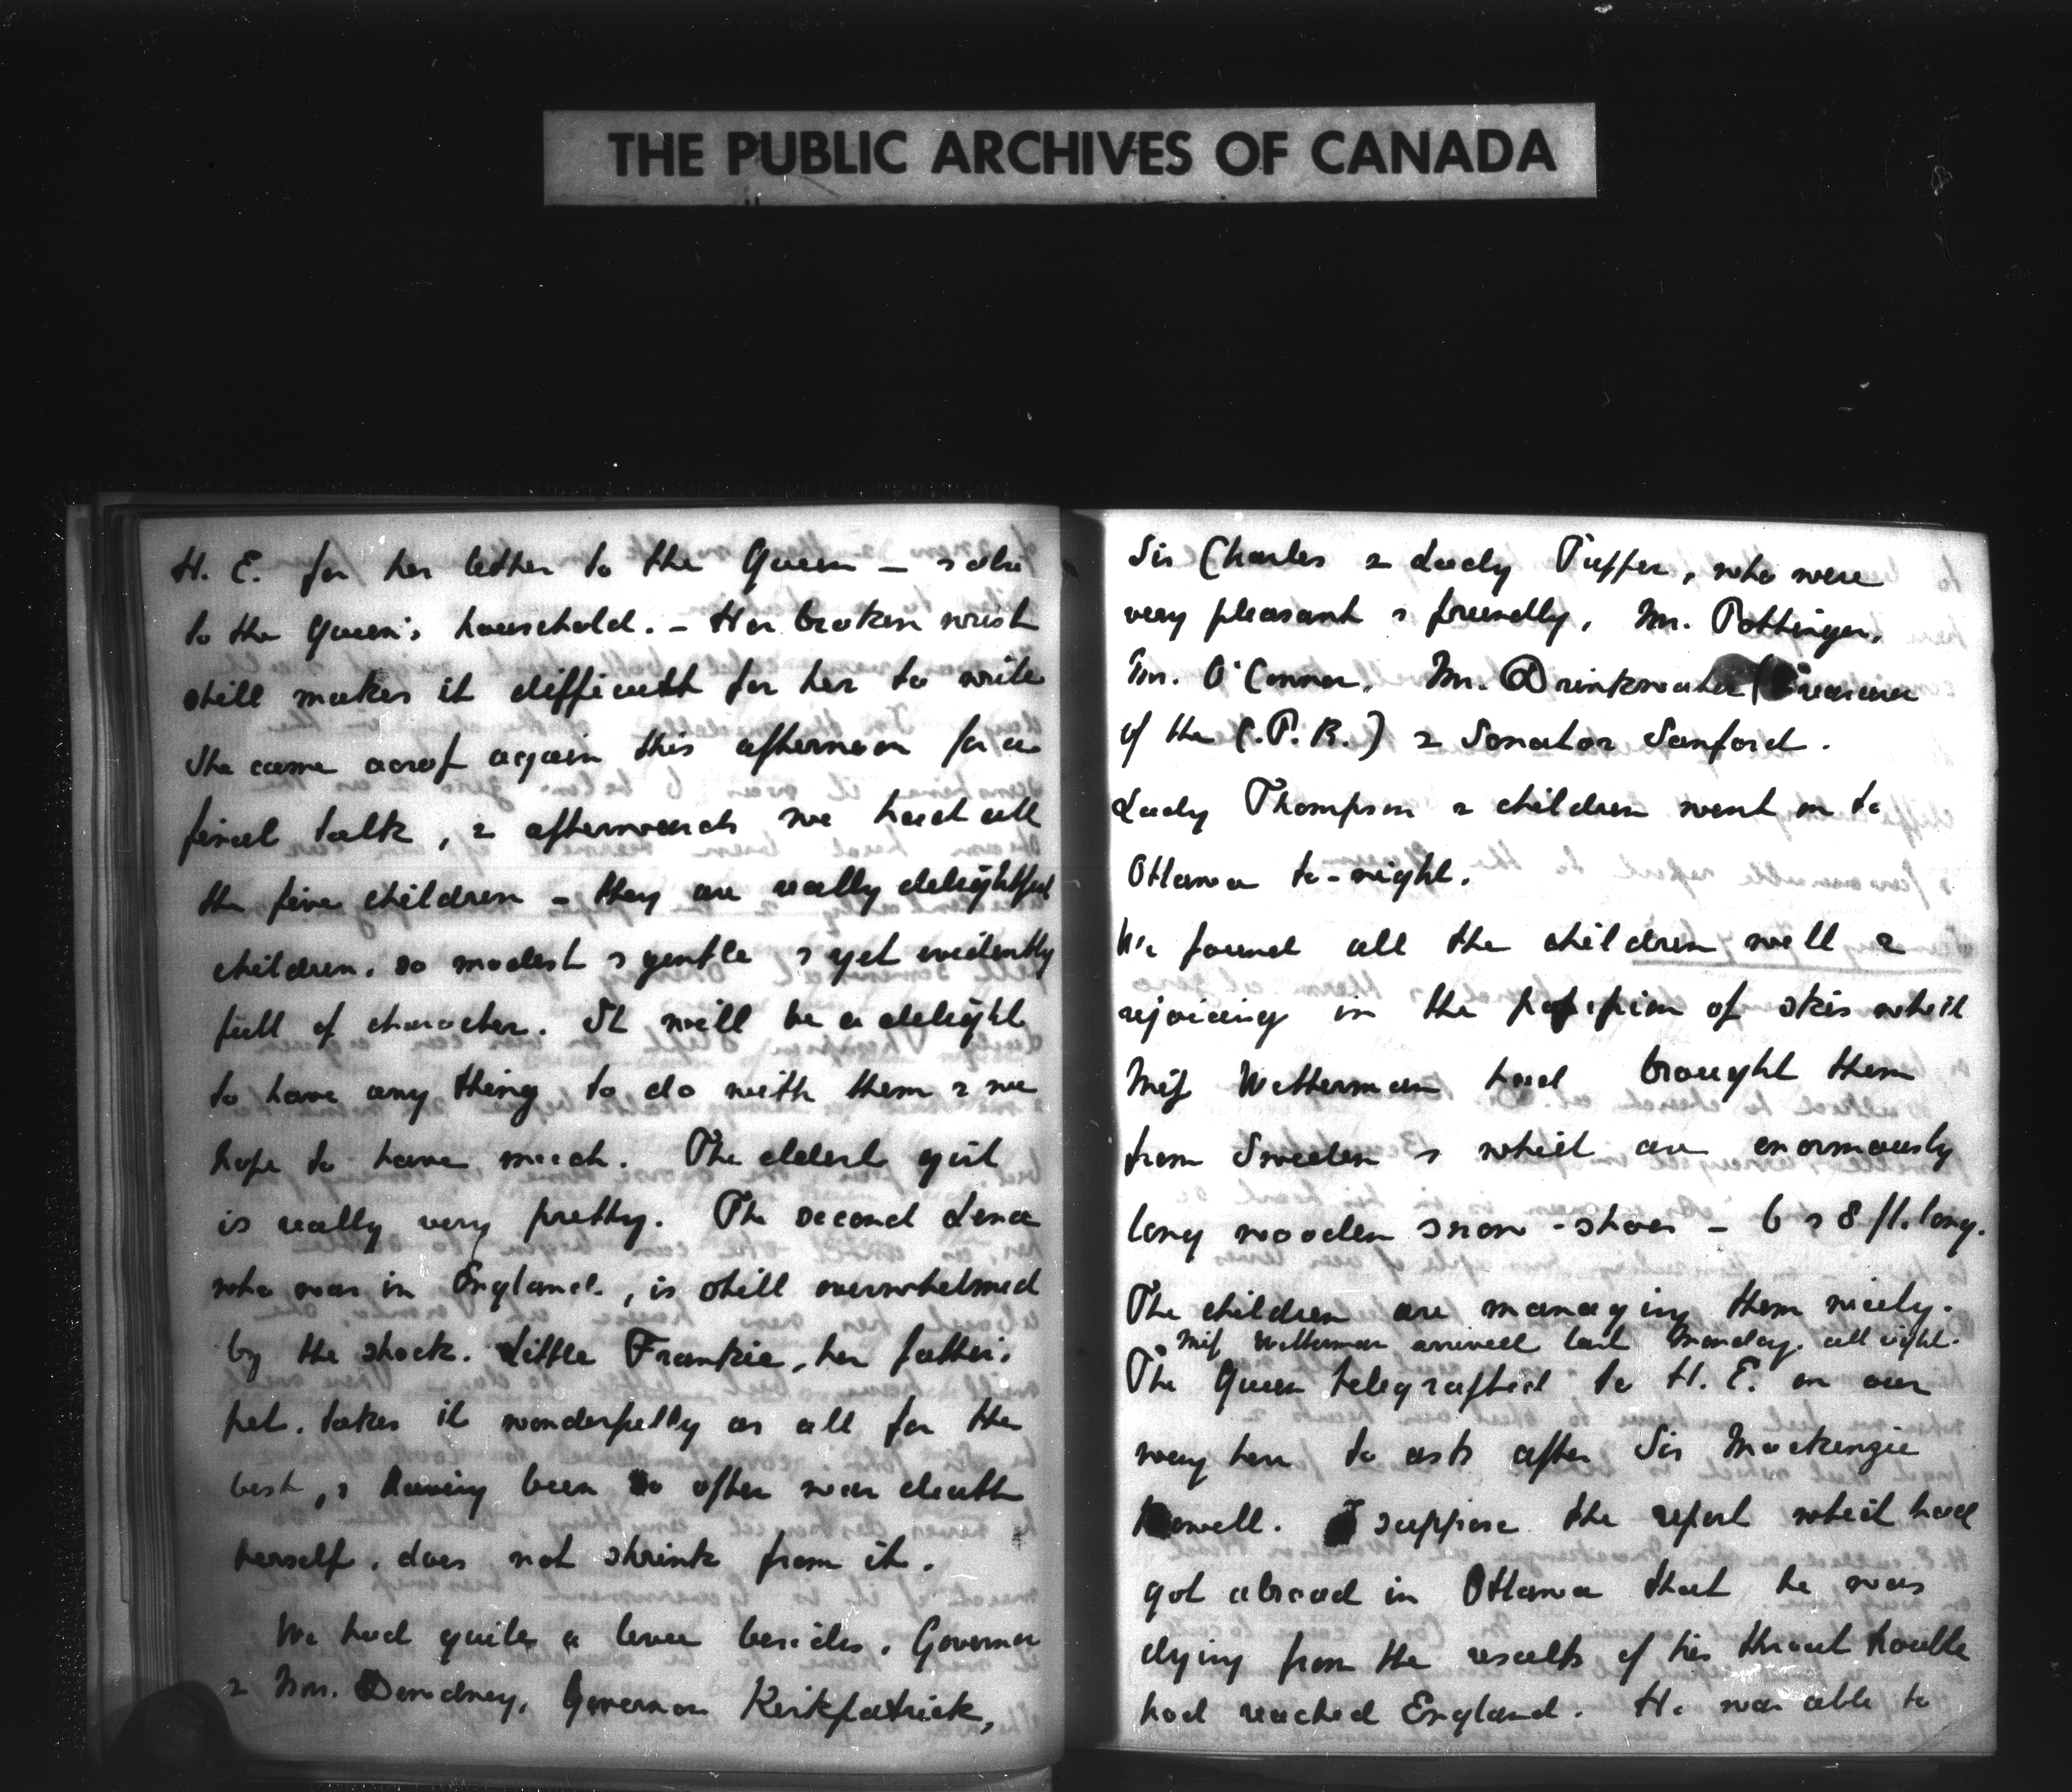 THE PUBLIC ARCHIVES OF CANADA
H. E. for her letter to the Queen – & also
to the Queen's household. – Her broken wrist
still makes it difficult for her to write
She came across again this afternoon for a
final talk, & afterwards we had all
the five children – they are really delightful
children, so modest & gentle & yet evidently
full of character. It will be a delight
to have any thing to do with them & we
hope to have much. The eldest girl
is really very pretty. The second Lena
who was in England, is still overwhelmed
by the shock. Little Frankie, her father's
pet, takes it wonderfully as all for the
best, & having been so often near death
herself, does not shrink from it.
We had quite a levee besides. Governor
& Mrs. Dewdney, Governor Kirkpatrick,
Sir Charles & Lady Tupper, who were
very pleasant & friendly, Mr. Pottinger,
Mr. O'Connor, Mr. Drinkwater (Treasurer
of the C.P.R.) & Senator Sanford.
Lady Thompson & children went on to
Ottawa to-night.
We found all the children well &
rejoicing in the possession of skis which
Miss Wetterman had brought them
from Sweden & which are enormously
long wooden snow-shoes – 6 & 8 ft. long.
The children are managing them nicely.
Miss Wetterman arrived last Monday, all right.
The Queen telegraphed to H. E. on our
way here to ask after Sir Mackenzie
Bowell. I suppose the report which had
got abroad in Ottawa that he was
dying from the results of his throat trouble
had reached England. He was able to